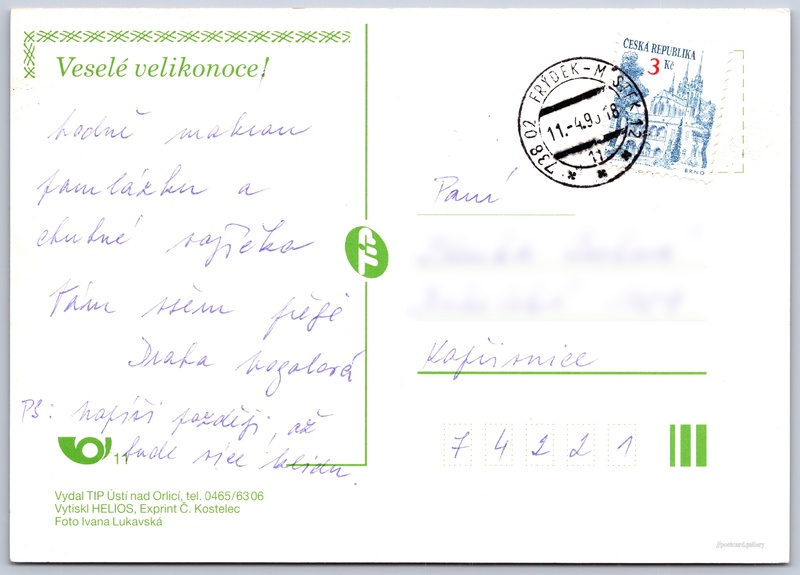 Veselé velikonoce!
hodně
pomlázku a
chutné vajíčka
Vám všem přeje
Draha
PS: napíši později, až
bude více klidu.
11
Vydal TIP Ústí nad Orlicí, tel. 0465/63 06
Vytiskl HELIOS, Exprint Č. Kostelec
Foto Ivana Lukavská
TIP
ČESKÁ REPUBLIKA
3 Kč
BRNO
738 02 FRÝDEK-MÍSTEK 2
11.-4.9
18
11
Paní
Kopřivnice
7 4 2 2 1